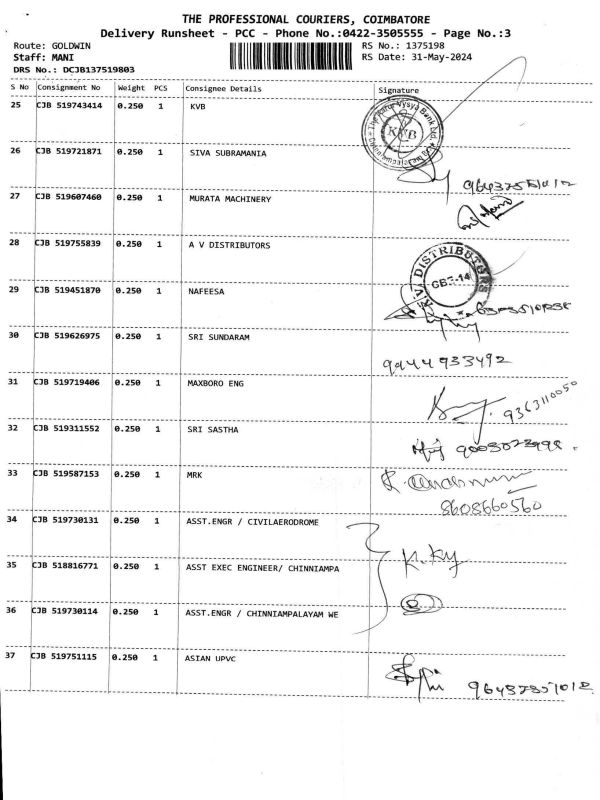 THE PROFESSIONAL COURIERS, COIMBATORE
Delivery Runsheet - PCC - Phone No.:0422-3505555 - Page No.:3
Route: GOLDWIN RS No.: 1375198
Staff: MANI RS Date: 31-May-2024
DRS No.: DCJB137519803
S No Consignment No Weight PCS Consignee Details Signature
25 CJB 519743414 0.250 1 KVB
KVB
26 CJB 519721871 0.250 1 SIVA SUBRAMANIA
27 CJB 519607460 0.250 1 MURATA MACHINERY
28 CJB 519755839 0.250 1 A V DISTRIBUTORS
A.V. DISTRIBUTORS
CBE-14
29 CJB 519451870 0.250 1 NAFEESA
30 CJB 519626975 0.250 1 SRI SUNDARAM
9944933492
31 CJB 519719406 0.250 1 MAXBORO ENG
9363110050
32 CJB 519311552 0.250 1 SRI SASTHA
33 CJB 519587153 0.250 1 MRK
8608660560
34 CJB 519730131 0.250 1 ASST.ENGR / CIVILAERODROME
35 CJB 518816771 0.250 1 ASST EXEC ENGINEER/ CHINNIAMPA
K.Ky
36 CJB 519730114 0.250 1 ASST.ENGR / CHINNIAMPALAYAM WE
37 CJB 519751115 0.250 1 ASIAN UPVC